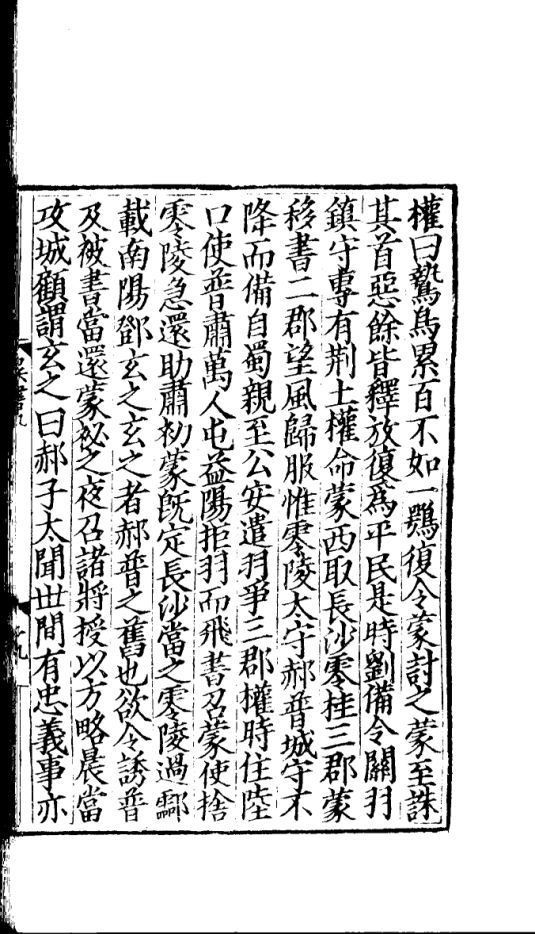 權曰鷙鳥累百不如一鶚復令蒙討之蒙至誅
其首惡餘皆釋放復爲平民是時劉備令關羽
鎮守專有荆土權命蒙西取長沙零桂三郡蒙
移書二郡望風歸服惟零陵太守郝普城守不
降而備自蜀親至公安遣羽爭三郡權時住陸
口使普肅萬人屯益陽拒羽而飛書召蒙使捨
零陵急還助肅初蒙旣定長沙當之零陵過酃
載南陽鄧玄之玄之者郝普之舊也欲令誘普
及被書當還蒙祕之夜召諸將授以方略晨當
攻城顧謂玄之曰郝子太聞世間有忠義事亦